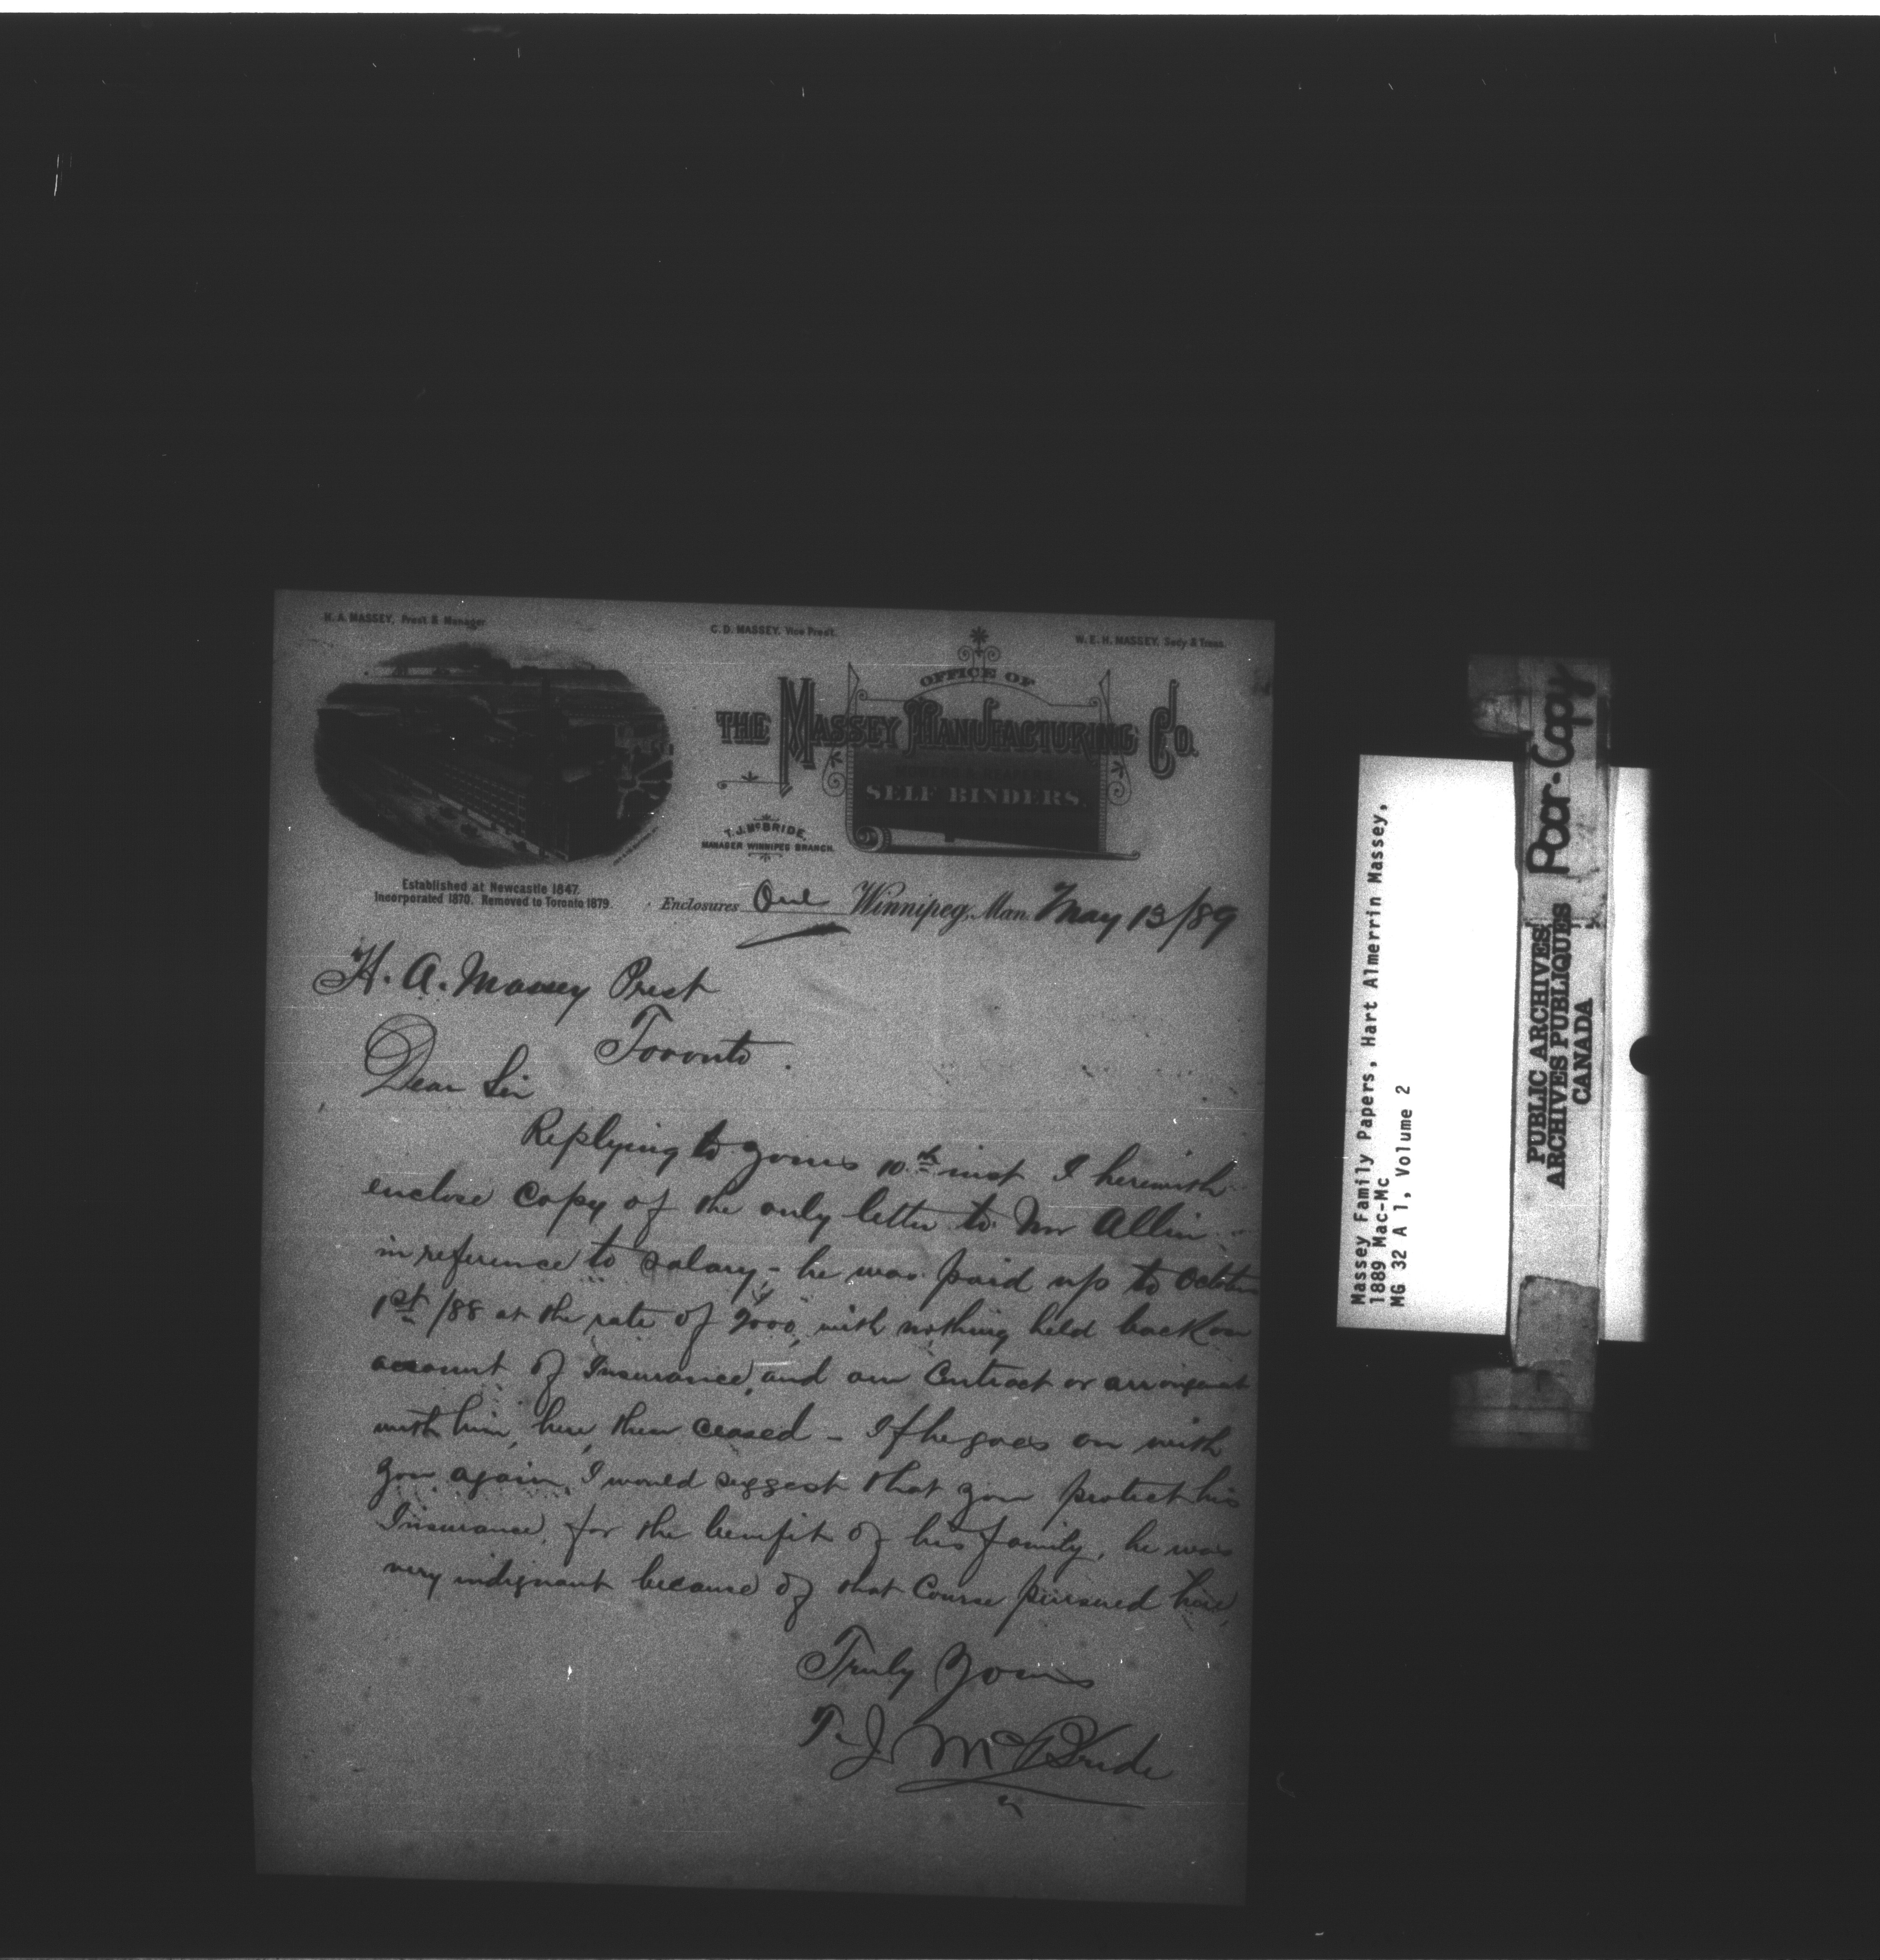 H. A. MASSEY, Prest & Manager
C. D. MASSEY, Vice Prest.
W. E. H. MASSEY, Secy & Treas.
OFFICE OF
THE MASSEY MANUFACTURING CO.
SELF BINDERS.
T. J. McBRIDE,
MANAGER WINNIPEG BRANCH.
Established at Newcastle 1847.
Incorporated 1870. Removed to Toronto 1879.
Enclosures One Winnipeg, Man. May 13/89
H. A. Massey Prest
Toronto.
Dear Sir
Replying to yours 10th inst I herewith
enclose copy of the only letter to Mr Allin
in reference to salary, - he was paid up to October
1st /88 at the rate of with nothing held back on
account of Insurance, and our Contract or arrangement
with him, here, then ceased - If he goes on with
you again, I would suggest that you protect his
Insurance, for the benefit of his family, he was
very indignant because of that Course pursued here,
Truly Yours
T. J. McBride
Massey Family Papers, Hart Almerrin Massey,
1889 Mac-Mc
MG 32 A 1, Volume 2
PUBLIC ARCHIVES
ARCHIVES PUBLIQUES
CANADA
Poor-Copy